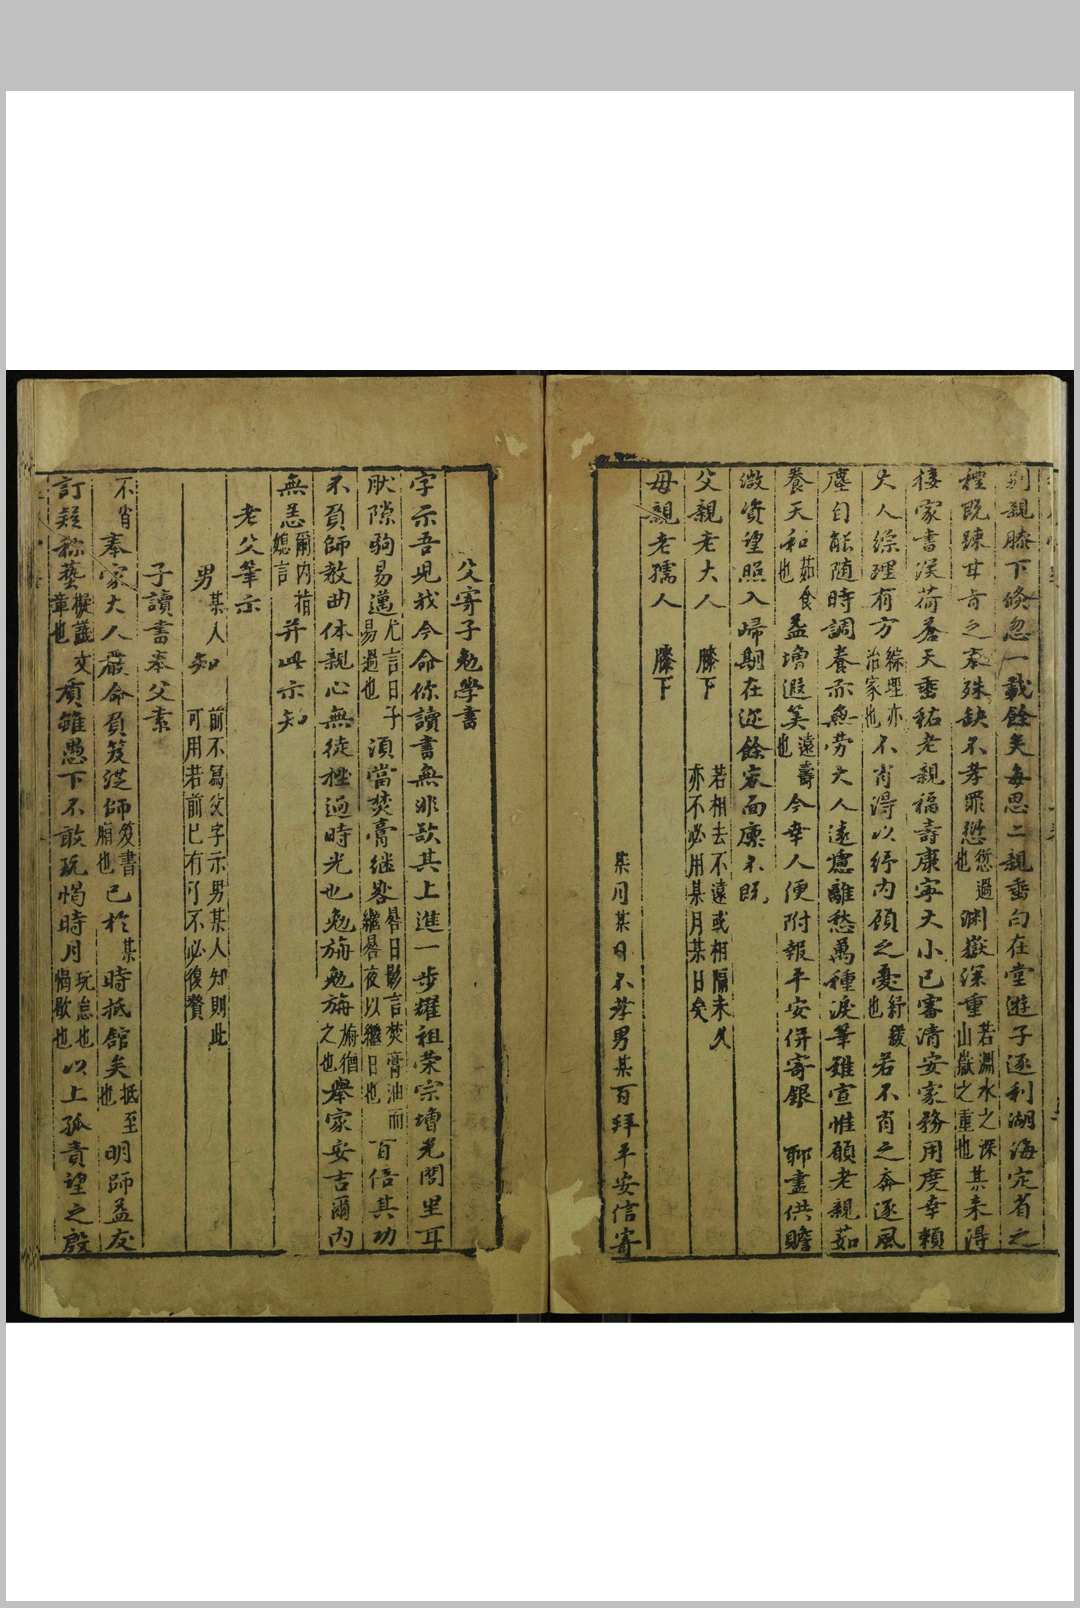 別親膝下倏忽一載餘矣每思二親垂白在堂遊子逐利湖海定省之
禮既疎甘旨之奉殊缺不孝罪愆愆過也淵嶽深重若淵水之深山嶽之重也某未得
接家書深荷蒼天垂祐老親福壽康寧大小已審清安家務用度幸賴
大人綜理有方綜理亦治家也不肖得以紓內顧之憂紓緩也若不肖之奔逐風
塵自能随時調養亦無勞大人遠慮離愁萬種淚筆難宣惟願老親茹
養天和茹食也益增遐筭遠壽也今幸人便附報平安併寄銀　聊盡供贍
微資望照入歸期在迩餘容面稟不既
父親老大人　膝下　若相去不遠或相隔未久亦不必用某月某日矣
母親老孺人　膝下
某月某日不孝男某百拜平安信寄
父寄子勉學書
字示吾兒我今命你讀書無非欲其上進一步耀祖荣宗增光閭里耳
肰隙駒易邁尤言日子易過也須當焚膏继晷晷日影言焚膏油而繼晷夜以繼日也百倍其功
不負師教曲体親心無徒挫過時光也勉旃勉旃旃猶之也舉家安吉爾內
無恙爾內指媳言并此示知
老父筆示
男某人知　前不寫父字示男某人知則此可用若前已有可不必復贅
子讀書奉父素
不肖奉家大人嚴命負笈從師笈書廂也已於某時抵舘矣抵至也明師益友
訂疑称藝擬議文章也質雖愚下不敢玩愒時月玩怠也愒歇也以上孤責望之殷